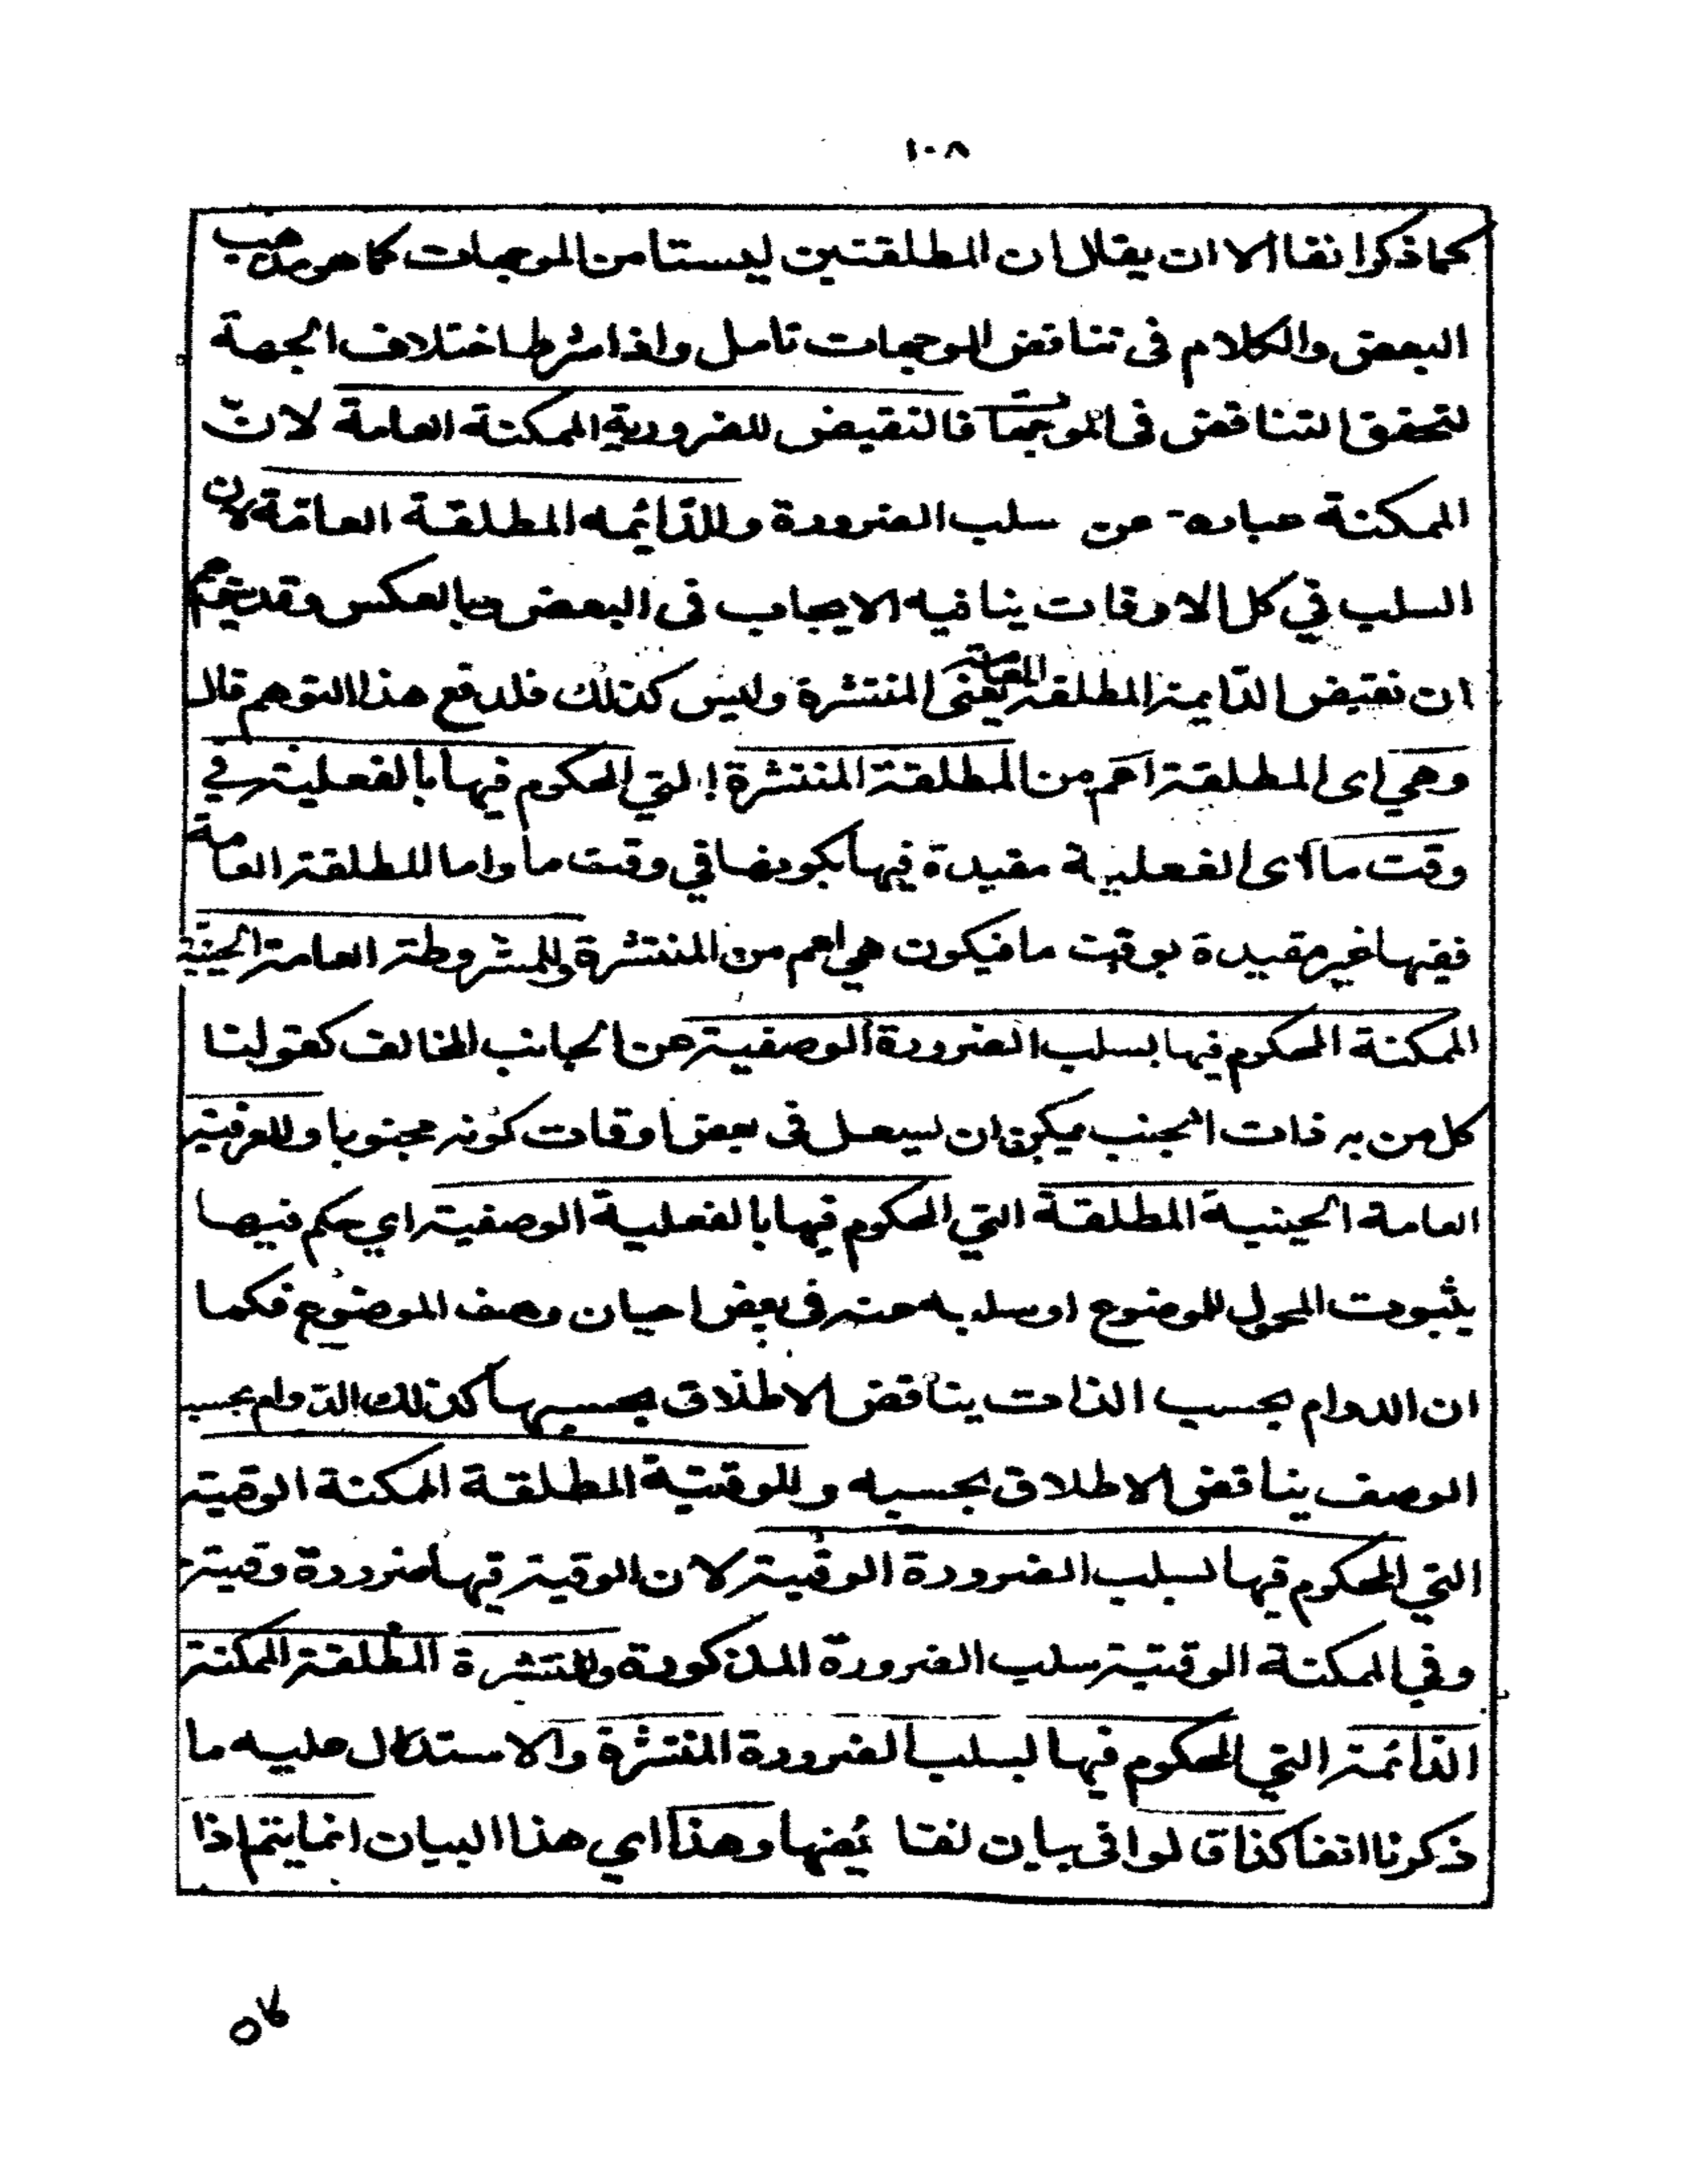 ١٠٨
كما ذكر انفا الا ان يقال ان المطلقتين ليستا من الموجهات كما هو مذهب
البعض والكلام فى تناقض الموجهات تامل واذا شرط اختلاف الجهة
لتحقق التناقض فى الموجهات فالنقيض للضرورية الممكنة العامة لان
الممكنة عبارة عن سلب الضرورة وللدائمه المطلقة العامة لان
السلب في كل الاوقات ينافيه الايجاب فى البعض وبالعكس وقد يتوهم
ان نقيض الدايمة المطلقة العامة يعنى المنتشرة وليس كذلك فلدفع هذا التوهم قال
وهي اى المطلقة اعم من المطلقة المنتشرة التي المحكوم فيها بالفعلية في
وقت ما اى الفعلية مقيدة فيها بكونها في وقت ما واما المطلقة العامة
ففيها غير مقيدة بوقت ما فيكون هي اعم من المنتشرة وللمشروطة العامة الحينية
الممكنة المحكوم فيها بسلب الضرورة الوصفية عن الجانب المخالف كقولنا
كل من به ذات الجنب يمكن ان يسعل فى بعض اوقات كونه مجنوبا وللعرفية
العامة الحينية المطلقة التي المحكوم فيها بالفعلية الوصفية اي حكم فيها
بثبوت المحمول للموضوع او سلبه عنه فى بعض احيان وصف الموضوع فكما
ان الدوام بحسب الذات يناقض الاطلاق بحسبها كذلك الدوام بحسب
الوصف يناقض الاطلاق بحسبه وللوقتية المطلقة الممكنة الوقتية
التي المحكوم فيها بسلب الضرورة الوقتية لان الوقتية فيها ضرورة وقتية
وفي الممكنة الوقتية سلب الضرورة المذكورة وللمنتشرة المطلقة الممكنة
الدائمة التي المحكوم فيها بسلب الضرورة المنتشرة والاستدلال عليه ما
ذكرنا انفا كذا قالوا فى بيان نقائضها وهذا اي هذا البيان انما يتم اذا